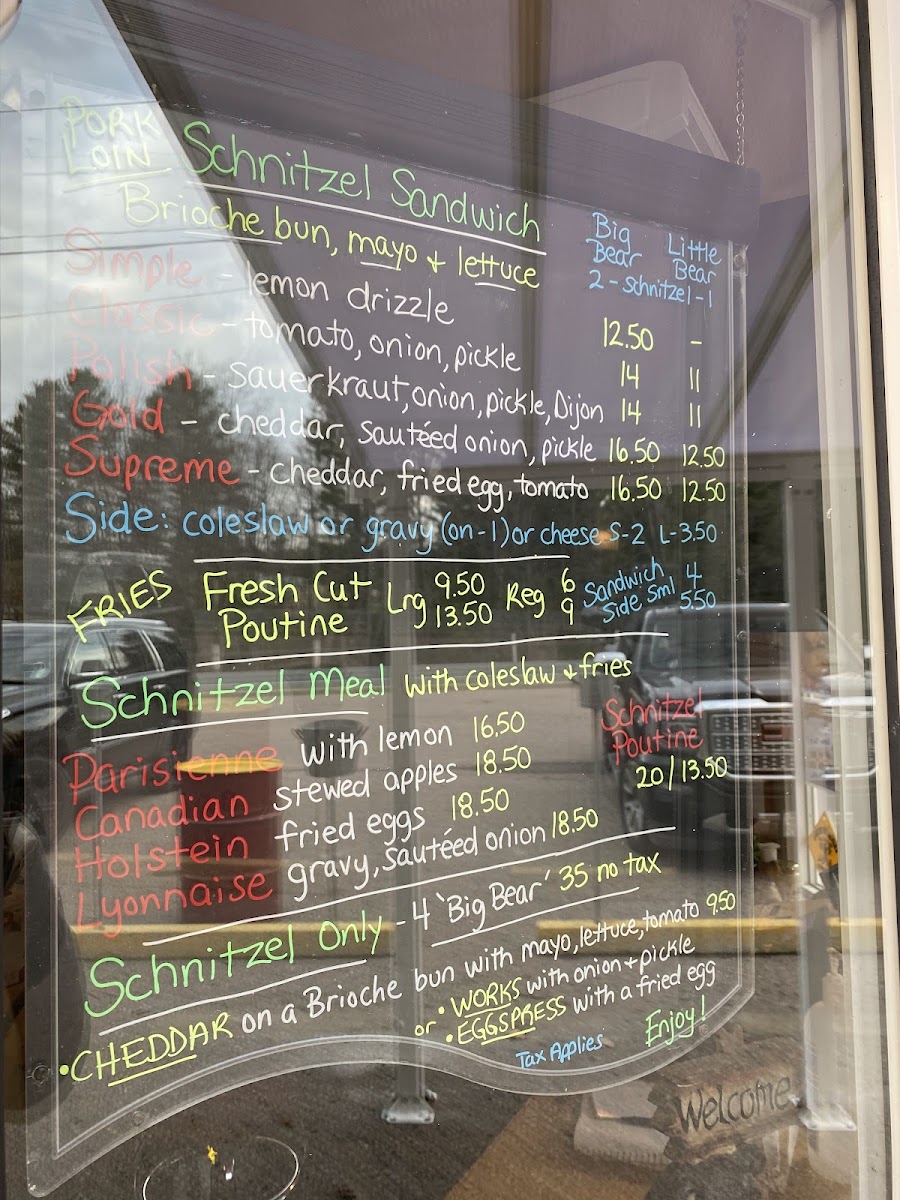 PORK LOIN Schnitzel Sandwich
Brioche bun, mayo + lettuce
Big Bear Little Bear
2 - schnitzel - 1
Simple - lemon drizzle 12.50 -
Classic - tomato, onion, pickle 14 11
Polish - sauerkraut, onion, pickle, Dijon 14 11
Gold - cheddar, sautéed onion, pickle 16.50 12.50
Supreme - cheddar, fried egg, tomato 16.50 12.50
Side: coleslaw or gravy (on-1) or cheese S-2 L-3.50
FRIES Fresh Cut Lrg 9.50 Reg 6 Sandwich 4
Poutine 13.50 9 Side Sml 5.50
Schnitzel Meal with coleslaw + fries
Parisienne with lemon 16.50
Canadian stewed apples 18.50
Holstein fried eggs 18.50
Lyonnaise gravy, sautéed onion 18.50
Schnitzel
Poutine
20/13.50
Schnitzel Only - 4 'Big Bear' 35 no tax
• CHEDDAR on a Brioche bun with mayo, lettuce, tomato 9.50
or • WORKS with onion + pickle
• EGGSPRESS with a fried egg
Tax Applies Enjoy!
Welcome